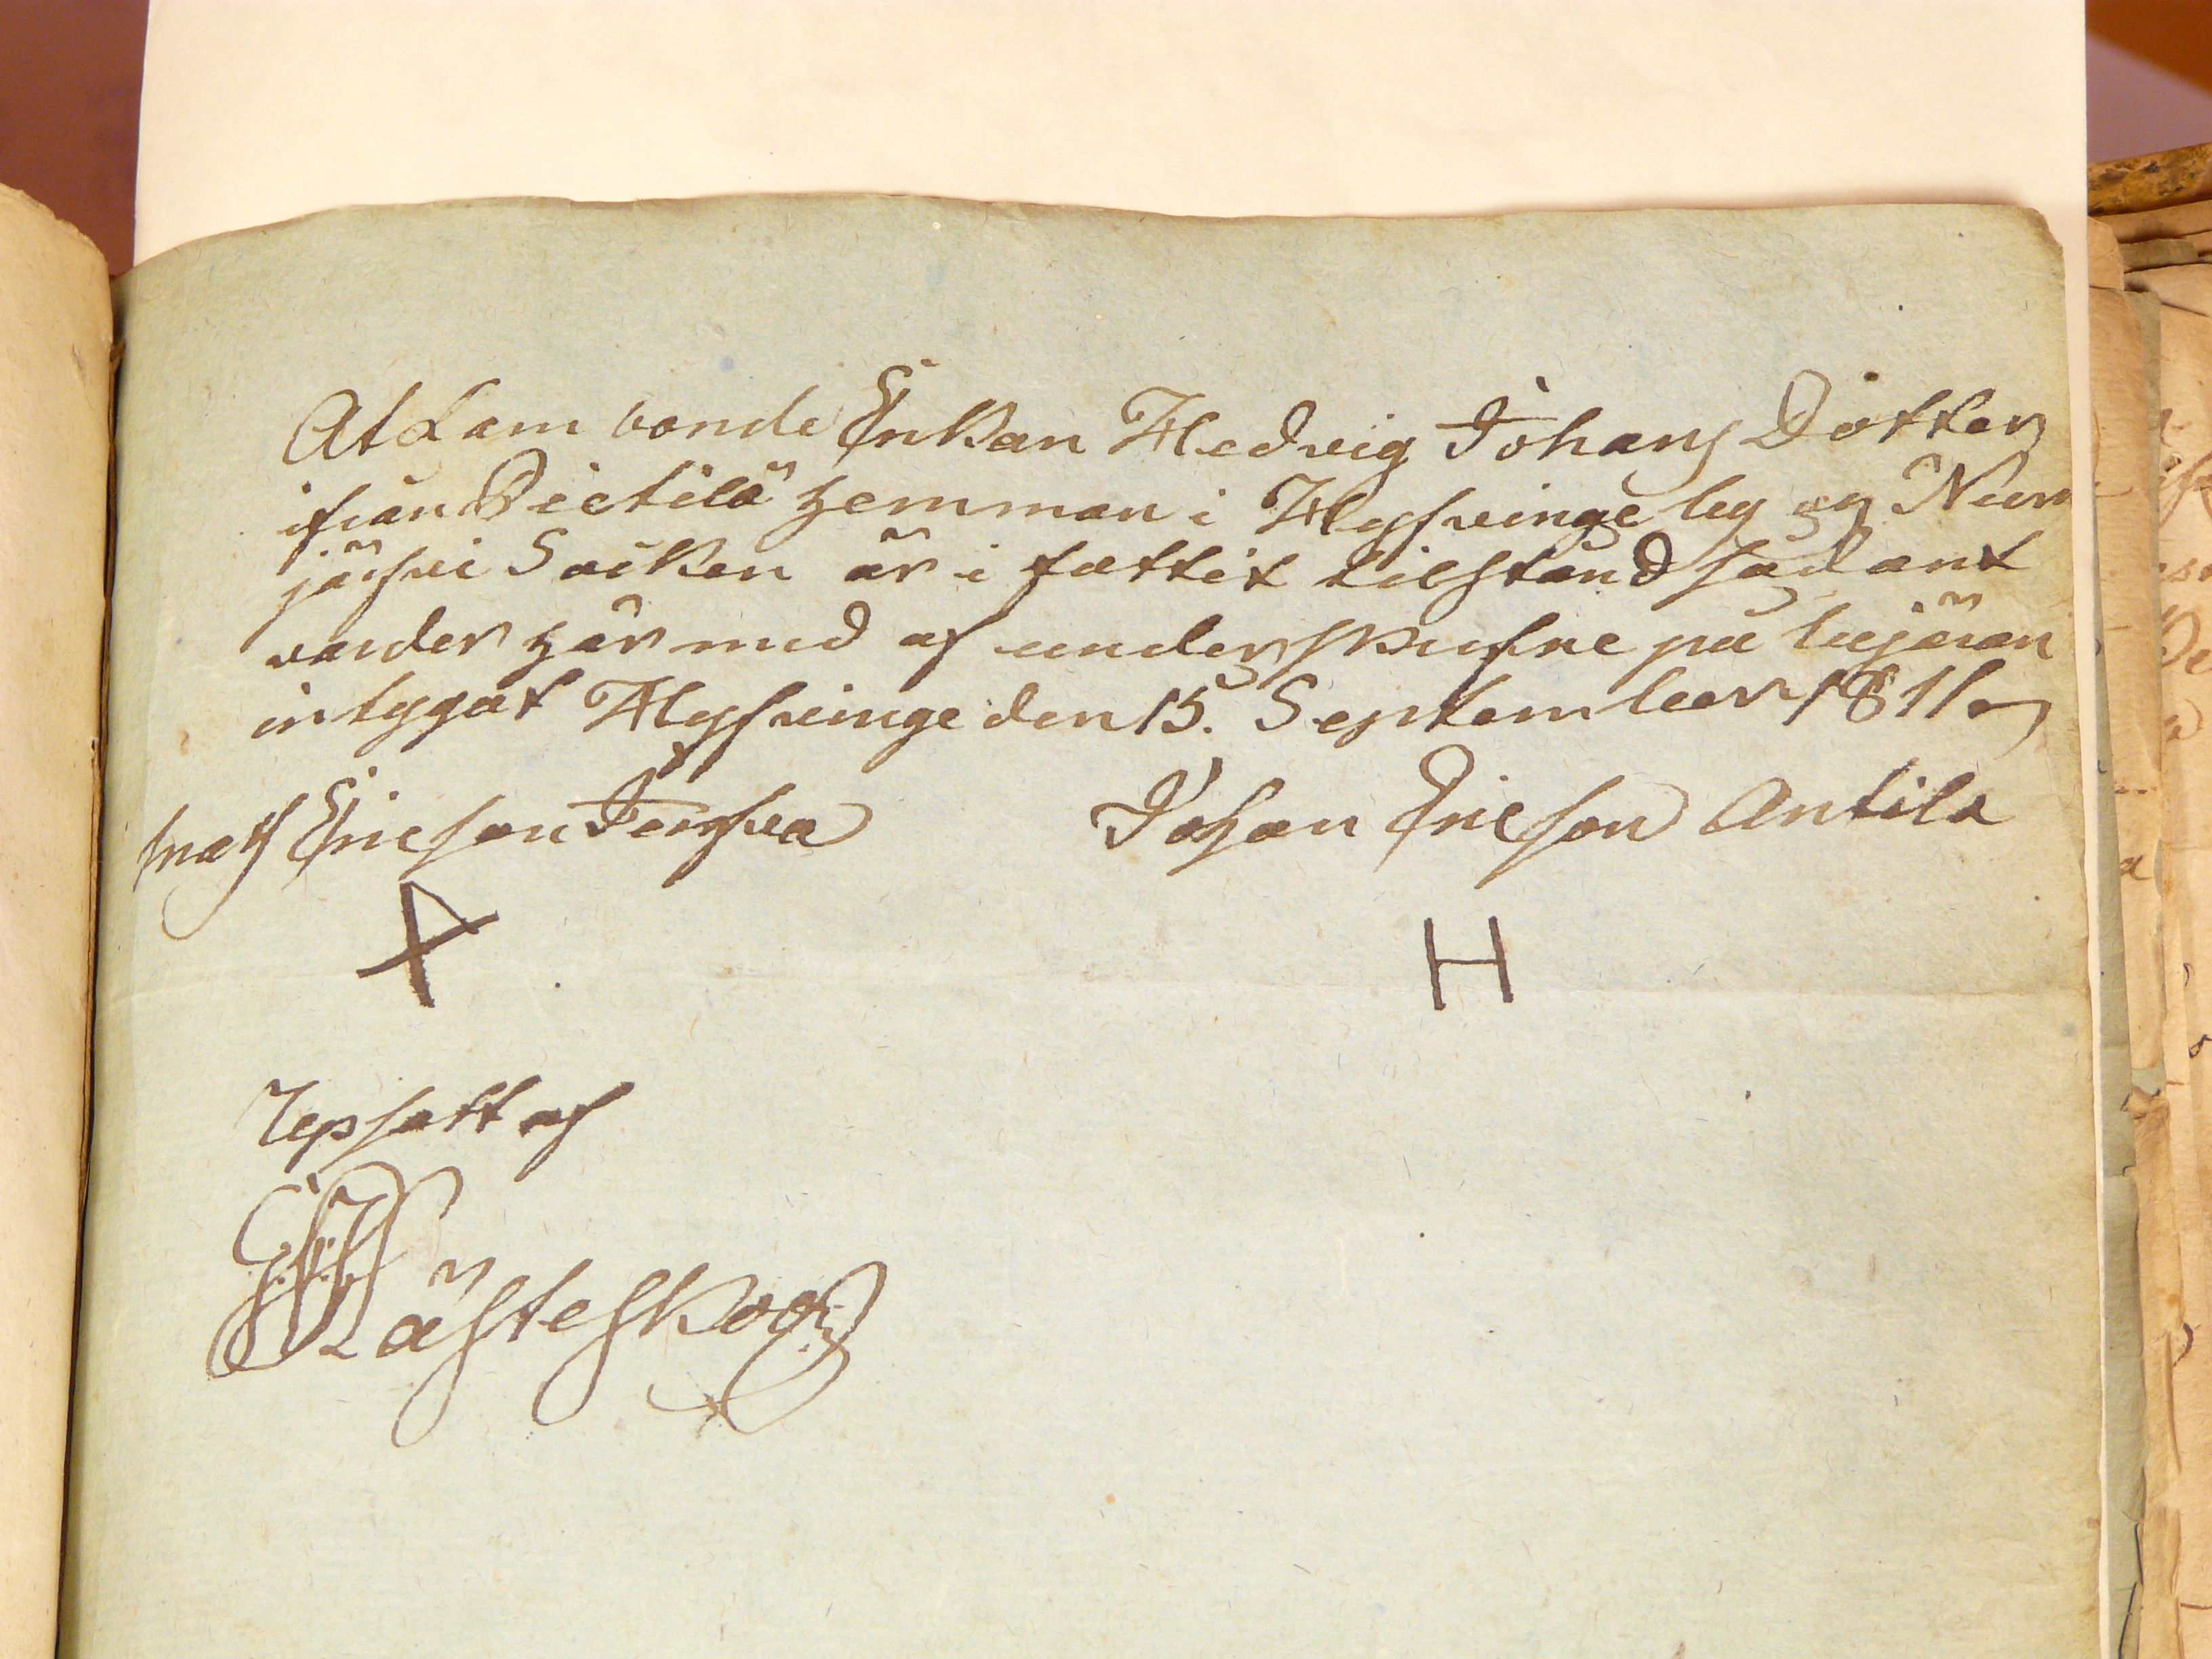 At Lam bonde Enkan Hedvig Johans Dotter
ifrån Pietilä hemman i Hyfvinge by og Num
järfvi Socken är i fattit tilstånd sådant
varder här med af underskrifne på begäran
intygat Hyfvinge den 15. September 1811
Mats Ericson Jerfva Johan Ericson Antila
H
Upsatt af
Västeskog